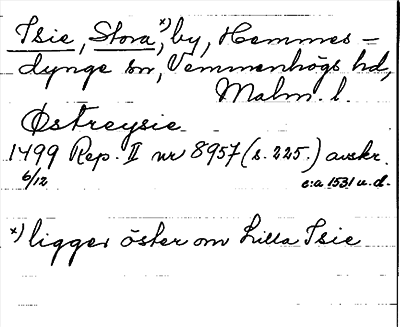 Isie, Stora,x) by, Hemmes=
dynge sn, Vemmenhögs hd,
Malm. l.
Østreysie
1499 Rep. II nr 8957 (s. 225.) avskr.
6/12 c:a 1531 u.d.
x) ligger öster om Lilla Isie